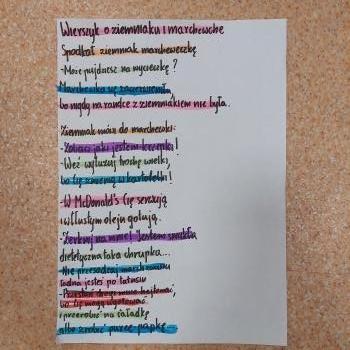 Wierszyk o ziemniaku i marchewche
Spodkał ziemniak marcheweczkę
-Może pujdziesz na wycieczkę?
Marchewka się zaczerwieniła,
bo nigdy na randce z ziemniakiem nie była.
Ziemniak mówi do marchewki:
-Zobacz jaki jestem krzepki!
-Weź wyluzuj trochę wielki,
bo Cię zmienią w kartofelki!
W McDonald's Cię serwują
i w tłustym oleju gotują.
-Zerknij na mnie! Jestem smukła
dietetyczna taka chrupka...
-Nie przesadzaj marchewuniu
ładna jesteś po tatusiu
-Przestań drogi mnie bajtować,
bo Cię mogą ugotować
i przerobić na sałatkę
albo zrobić puree papkę.